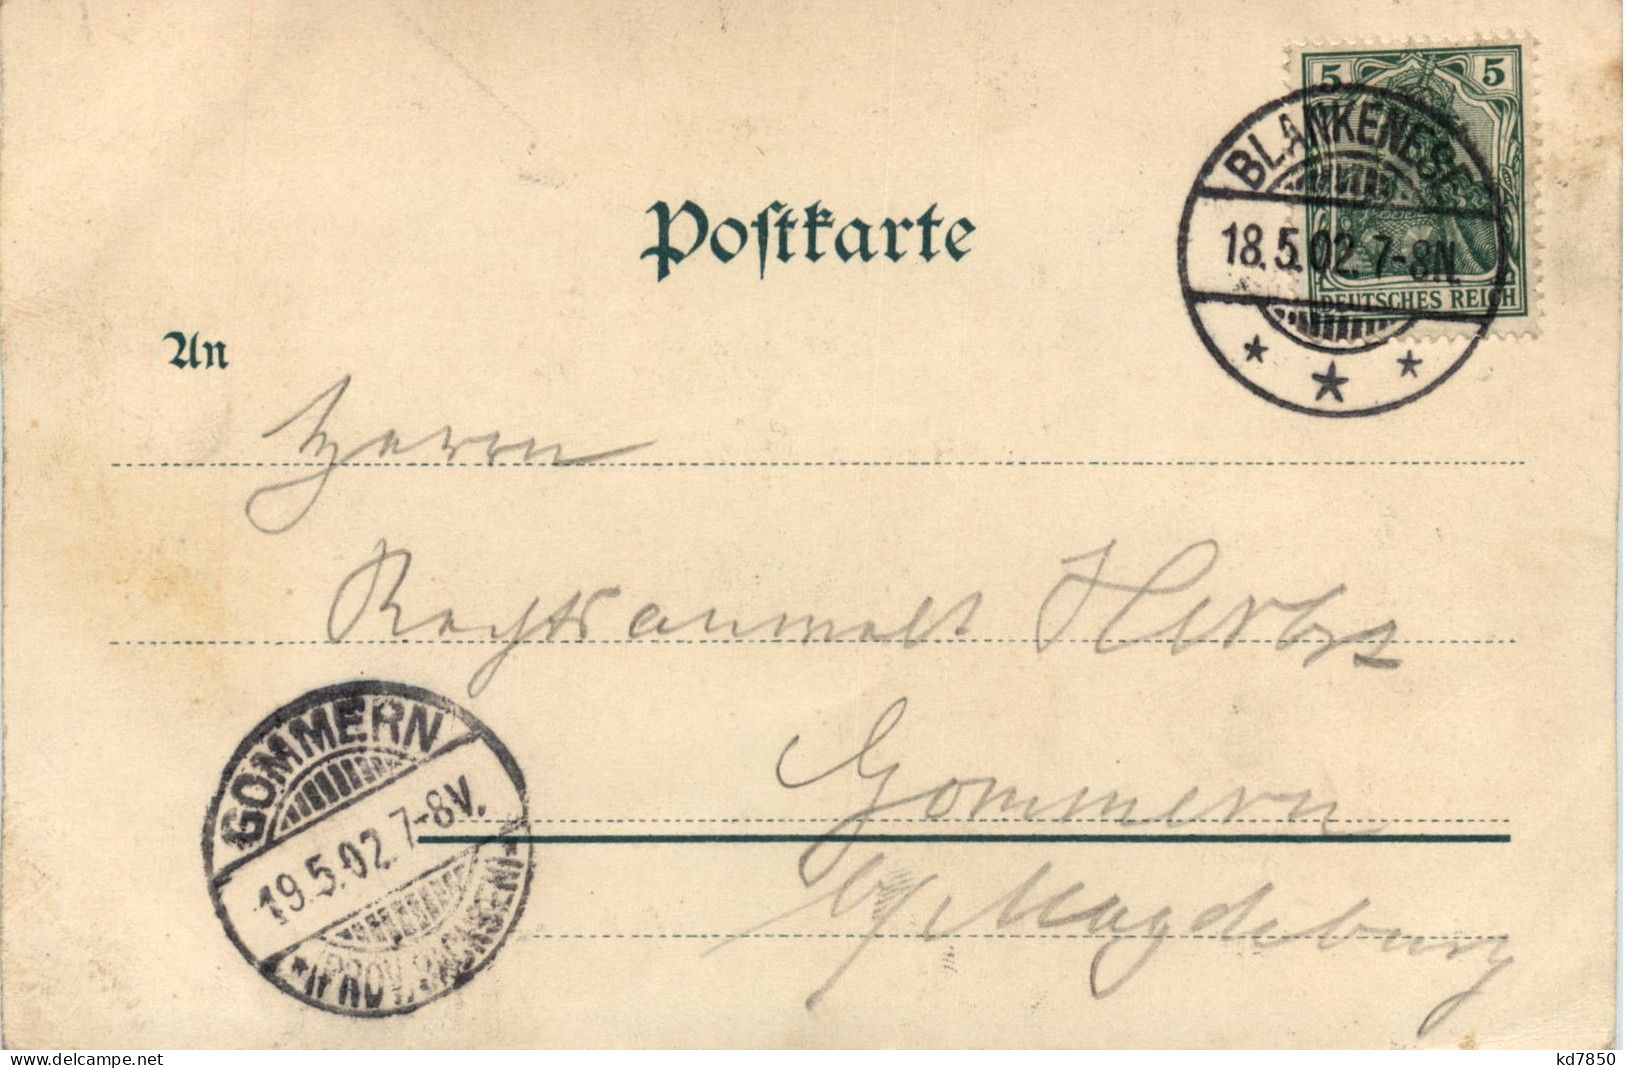 5 5
BLANKENESE
18.5.02.7-8N.
DEUTSCHES REICH
Postkarte
An
Herrn
Rechtsanwalt
Gommern
b/Magdeburg
GOMMERN
19.5.02.7-8V.
*(PROV. SACHSEN)*
delcampe.net
kd7850